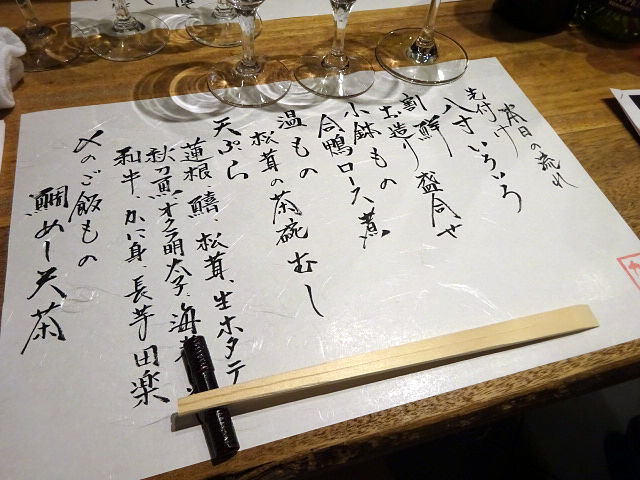 本日の流れ
先付け
八寸いろいろ
割鮮
お造り 盛合せ
小鉢もの
合鴨ロース煮
温もの
松茸の茶碗むし
天ぷら
蓮根、鱚、松茸、生ホタテ
秋刀魚オクラ明太子、海
和牛、かに身、長芋田楽
〆のご飯もの
鯛めし天茶